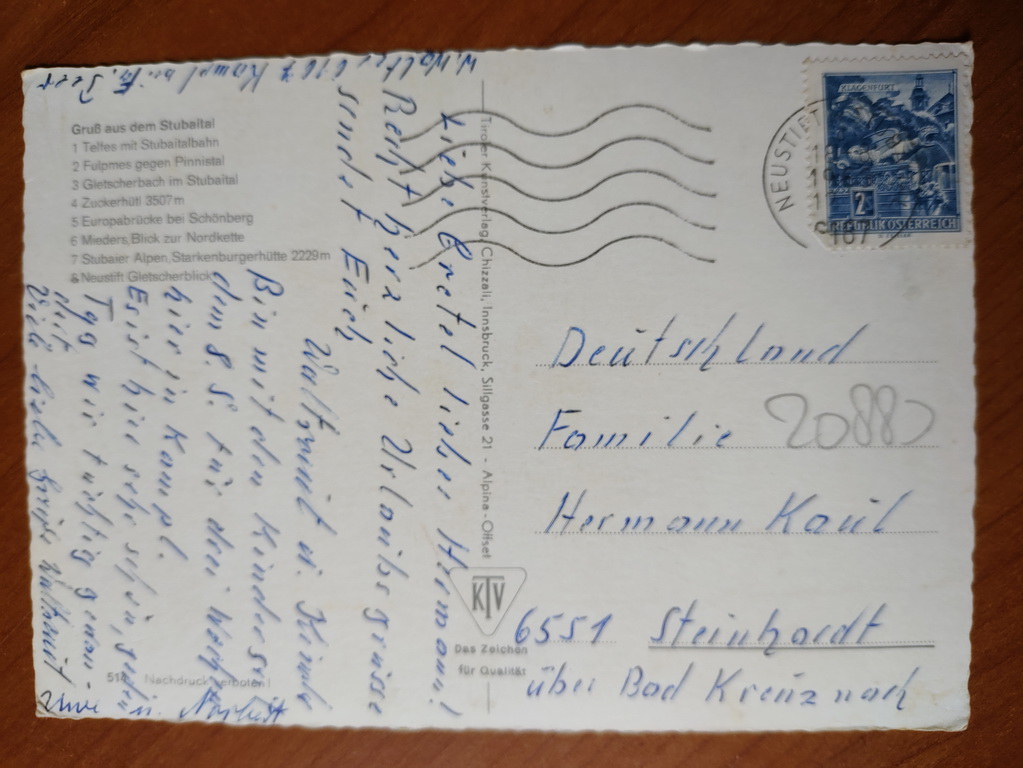 W. Walter 6167 Kampl bei
Gruß aus dem Stubaital
1 Telfes mit Stubaitalbahn
2 Fulpmes gegen Pinnistal
3 Gletscherbach im Stubaital
4 Zuckerhütl 3507 m
5 Europabrücke bei Schönberg
6 Mieders, Blick zur Nordkette
7 Stubaier Alpen, Starkenburgerhütte 2229 m
8 Neustift Gletscherblick
Liebe Gretel lieber Hermann!
Recht herzliche Urlaubsgrüsse
sendet Euch
Waltraut u. Kinder
Bin mit den Kindern seit
dem 8. 8. für drei Wochen
hier in Kampl.
Es ist hier sehr schön, jeden
Tag wir tüchtig gewandert
Viele liebe Grüße Waltraut
Uwe u. Norbert
514 Nachdruck verboten!
Tiroler Kunstverlag Chizzali, Innsbruck, Sillgasse 21 - Alpina-Offset
KTV
Das Zeichen
für Qualität
KLAGENFURT
2
REPUBLIK ÖSTERREICH
NEUSTIFT
6167
Deutschland
Familie
20880
Hermann Kaul
6551 Steinhardt
über Bad Kreuznach